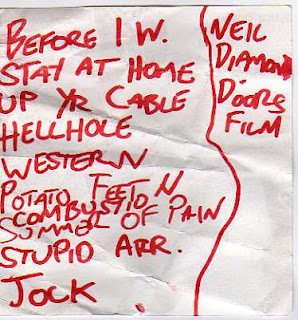 BEFORE I W.
STAY AT HOME
UP YR CABLE
HELLHOLE
WESTERN
POTATO FEET N
COMBUSTIO
SUMMER OF PAIN
STUPID ARR.
JOCK
NEIL
DIAMOND
DOORS
FILM